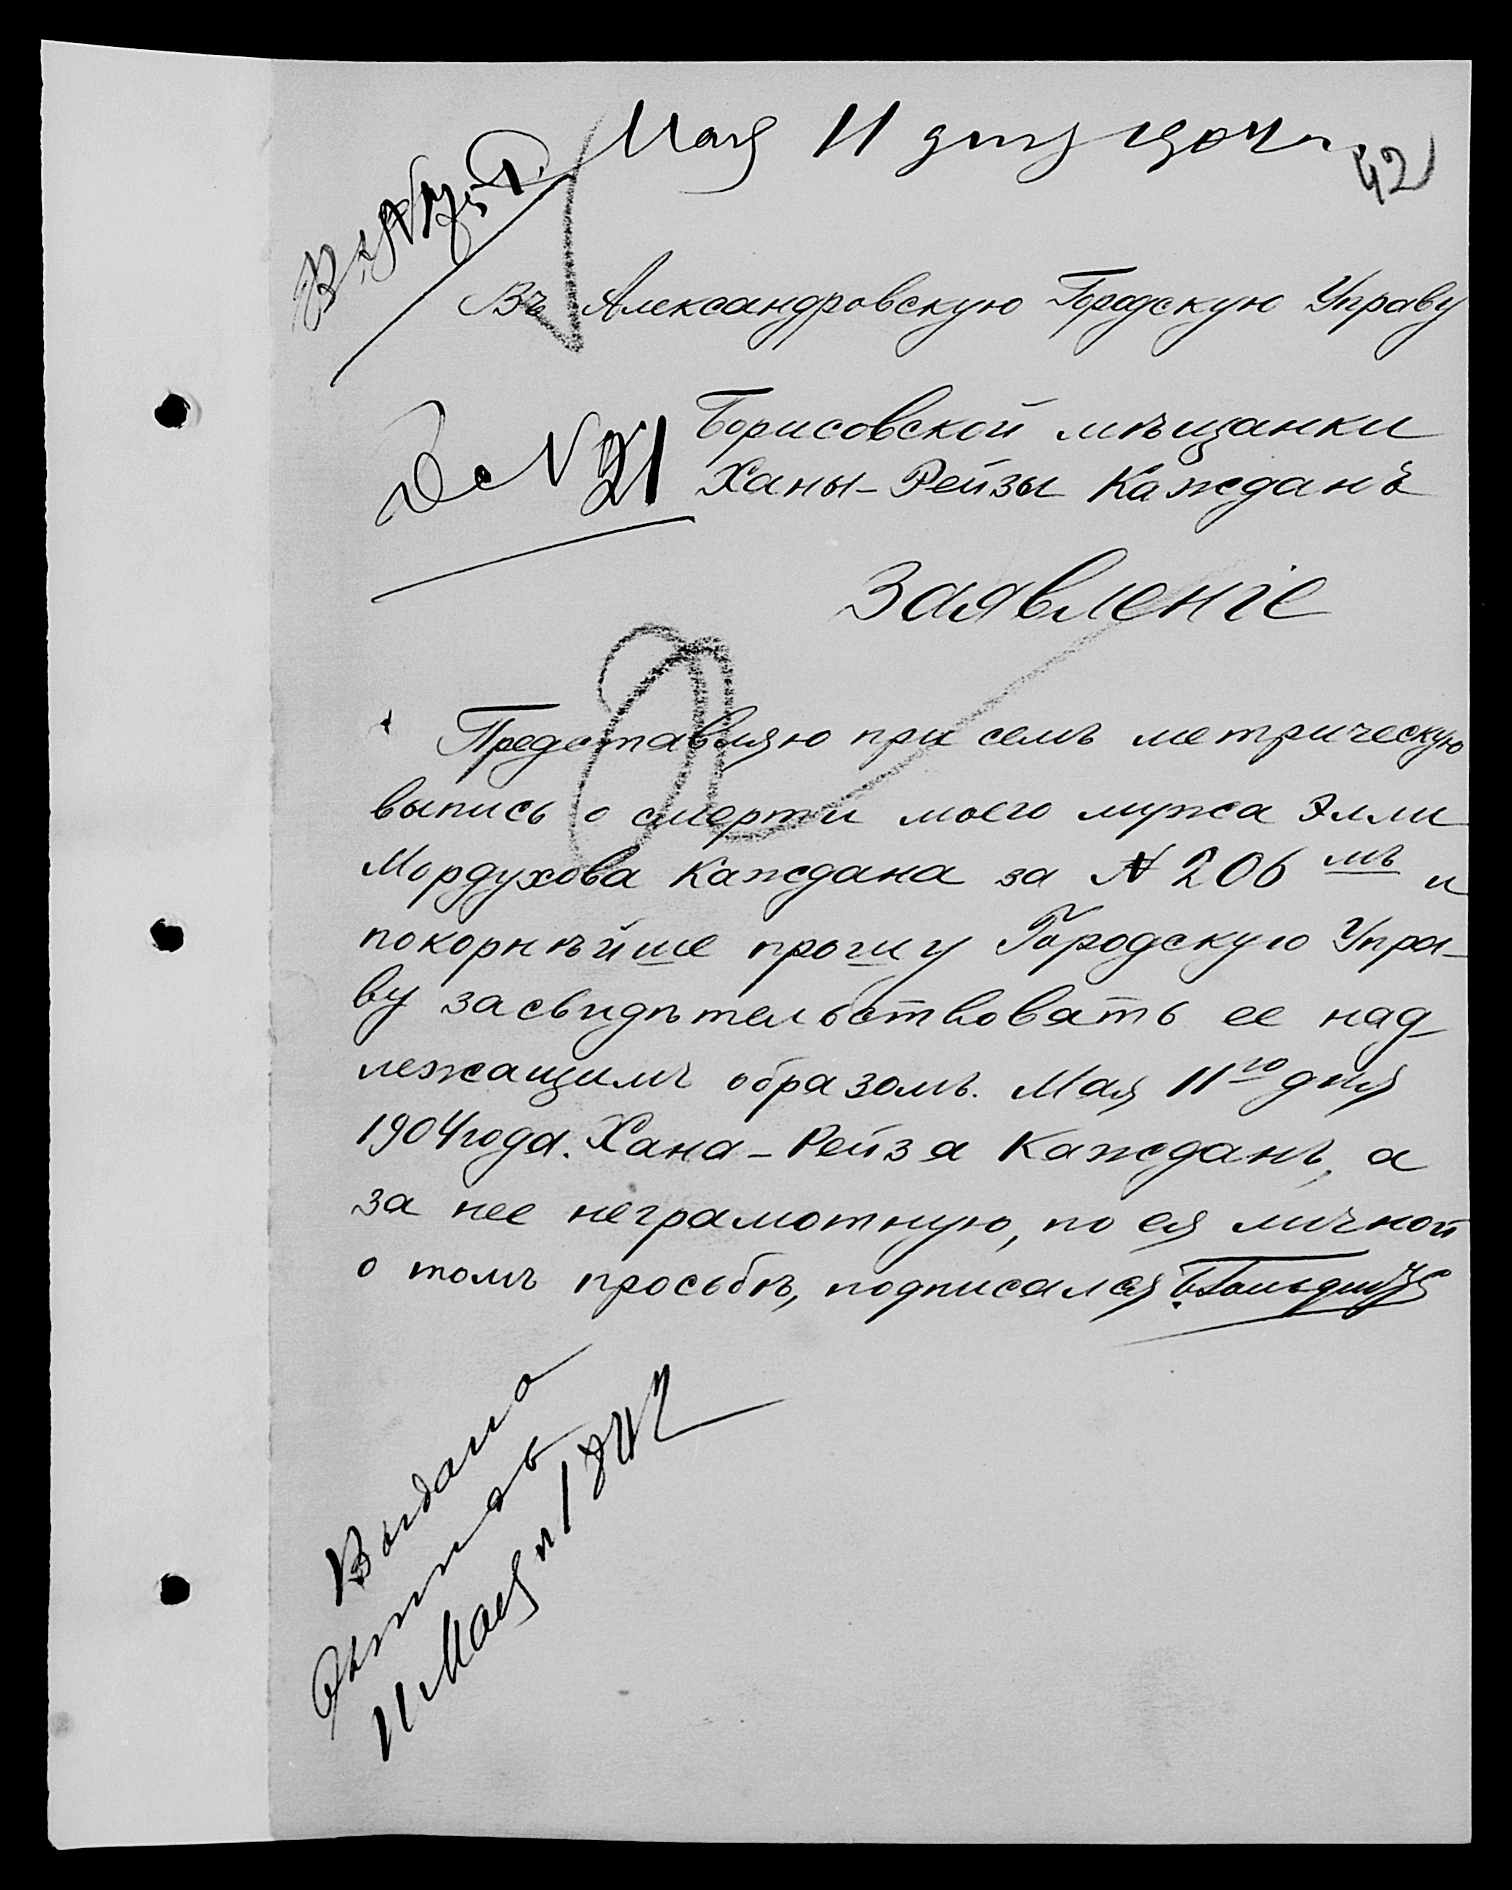 Мая 11 дня 1904 г.
42
Въ Александровскую Городскую Управу
Борисовской мѣщанки
Ханы-Рейзы Кажданъ
Дс № 91
Заявленіе
Представляю при семъ метрическую
выпись о смерти моего мужа Элли
Мордухова Каждана за № 206 мъ и
покорнѣйше прошу Городскую Упра-
ву засвидѣтельствовать ее над-
лежащимъ образомъ. Мая 11го дня
1904 года. Хана-Рейза Кажданъ, а
за нее неграмотную, по ея личной
о томъ просьбѣ, подписался
Выдана
11 Мая